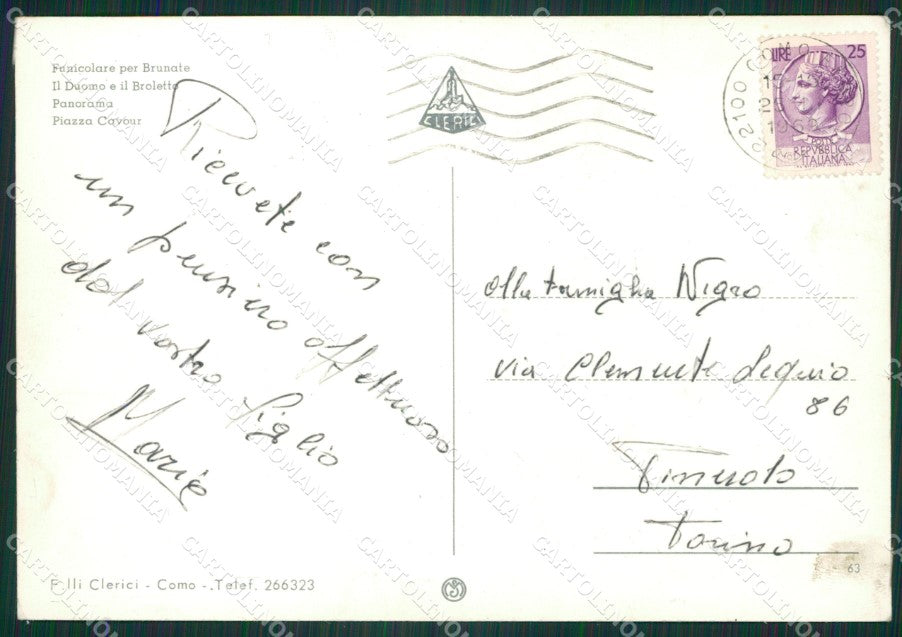 Funicolare per Brunate
Il Duomo e il Broletto
Panorama
Piazza Cavour
CLERICI
LIRE 25
POSTE
REPVBBLICA
ITALIANA
22100 COMO
Ricevete con
un pensiero affettuoso
dal vostro figlio
Mario
alla famiglia Nigro
via Clemente Lequio
86
Pinerolo
Torino
F.lli Clerici - Como - Telef. 266323
63
CARTOLINOMANIA